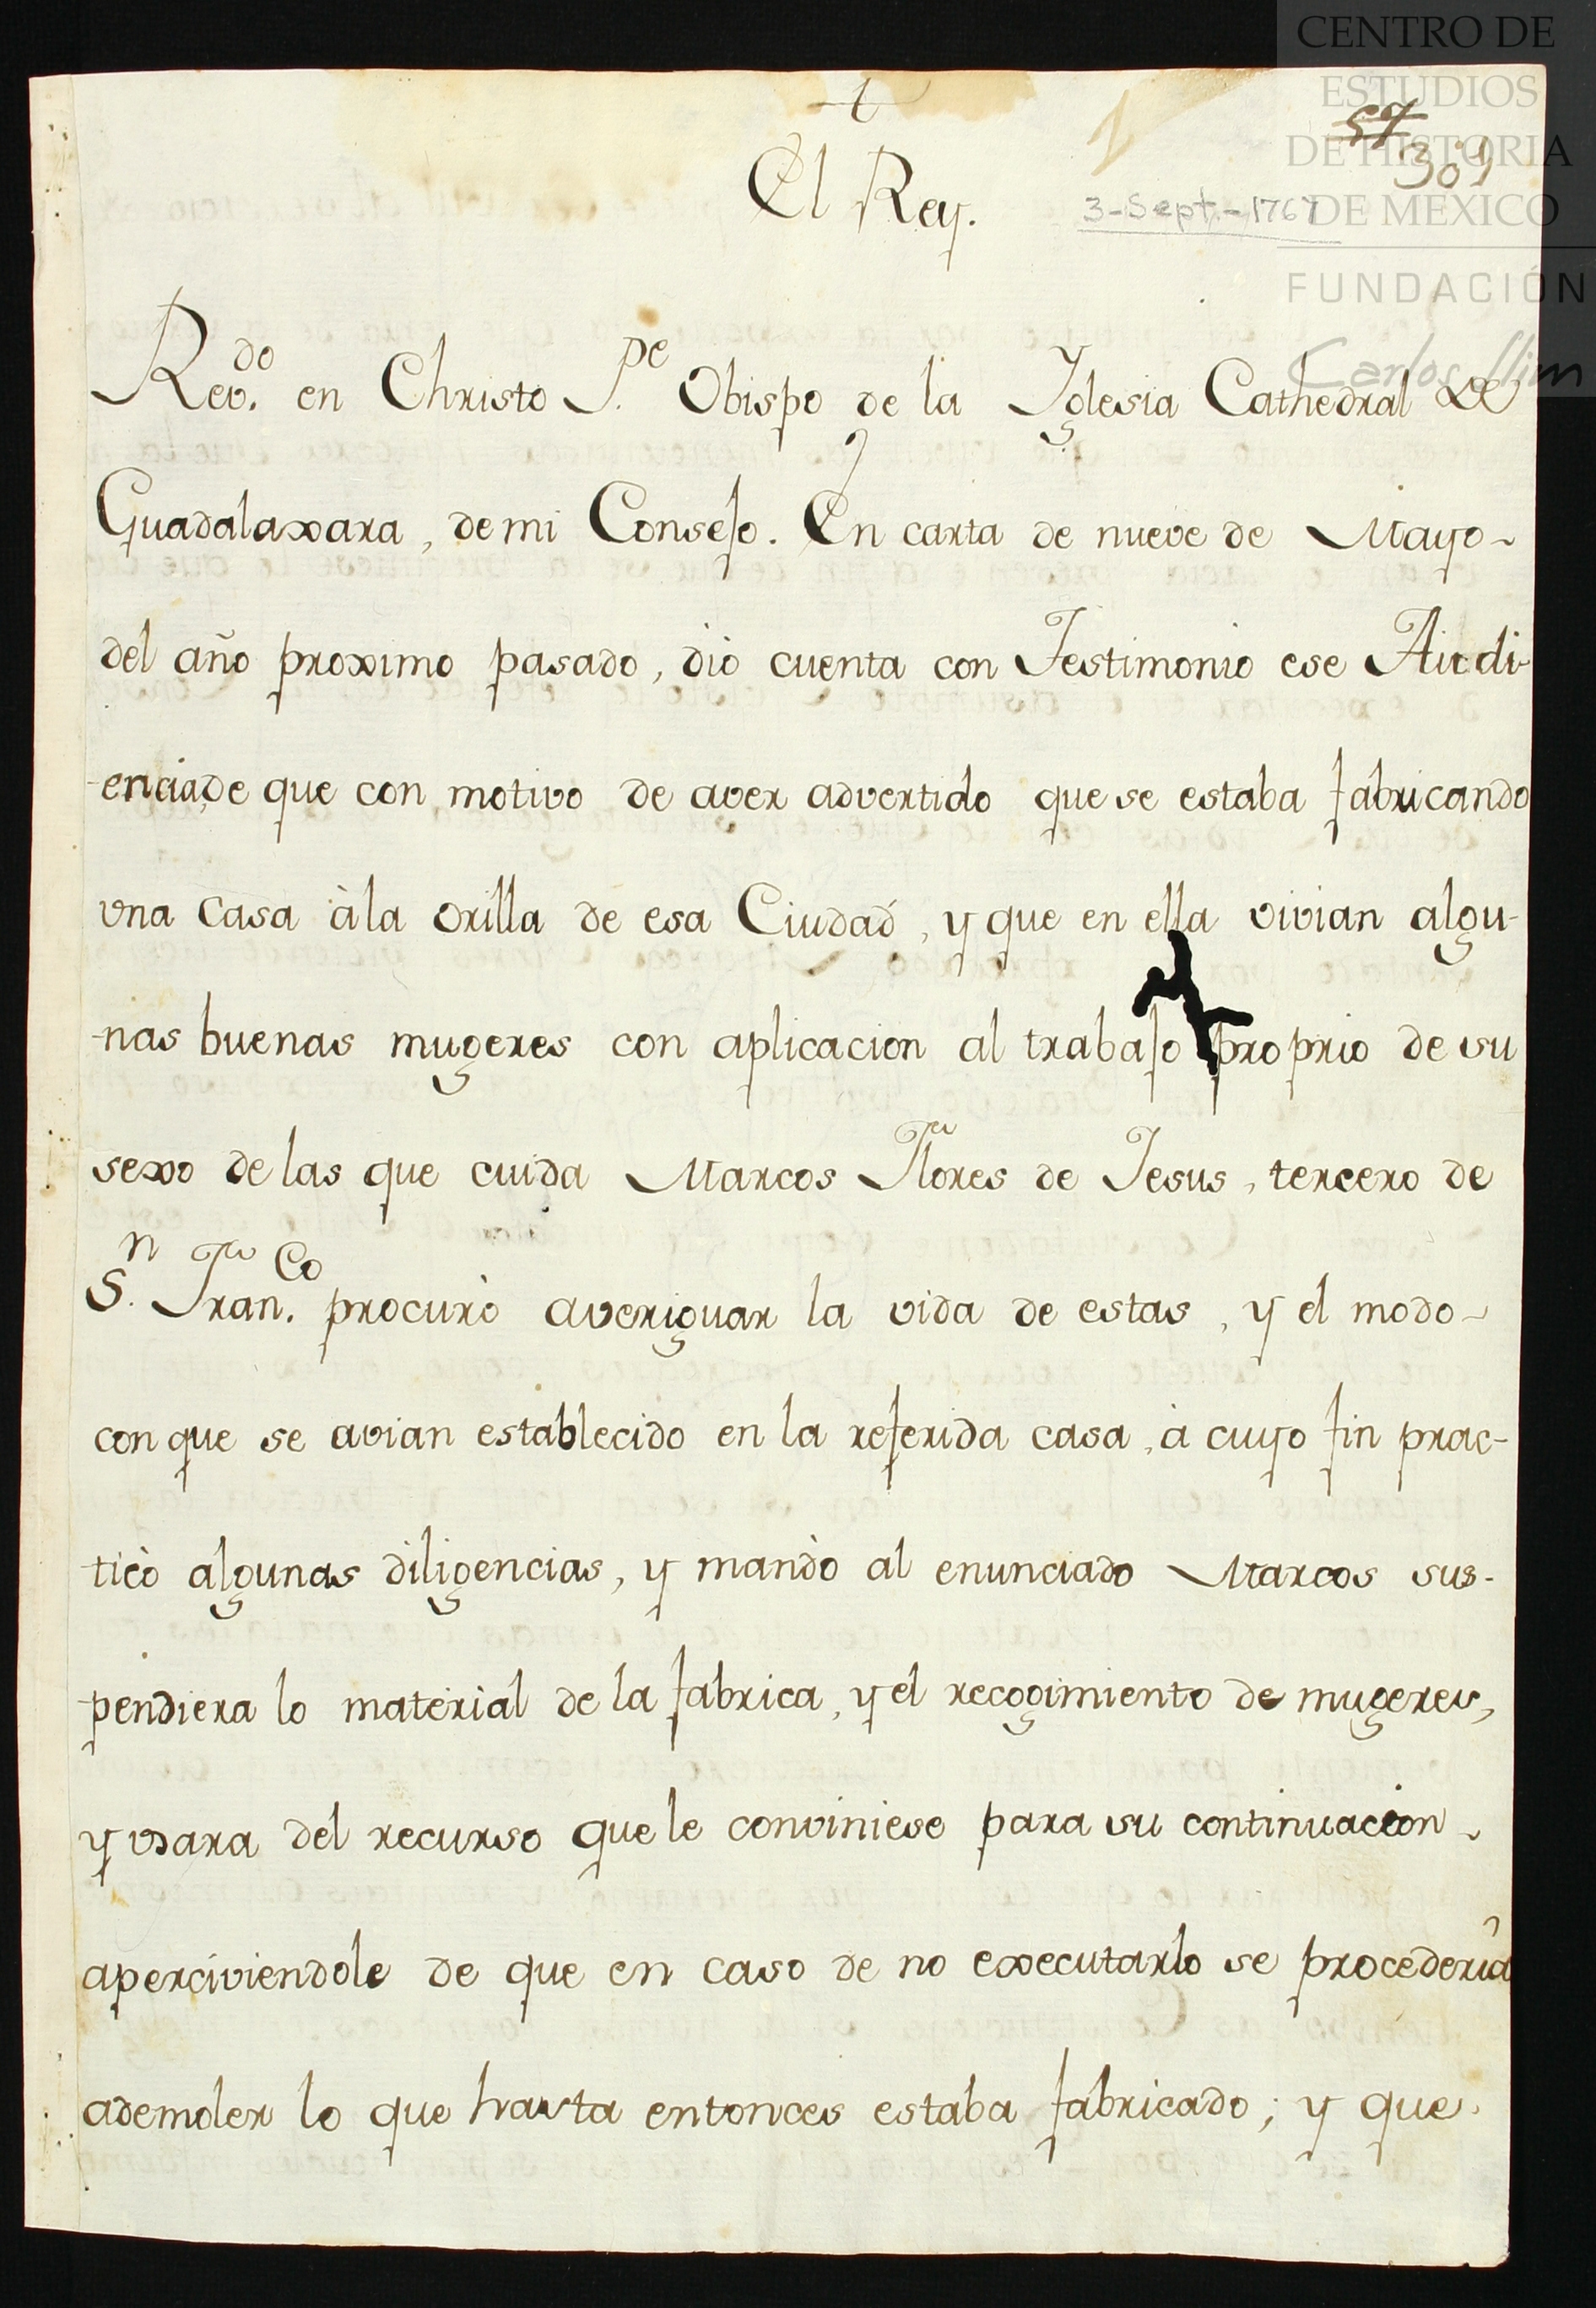 CENTRO DE
ESTUDIOS
DE HISTORIA
DE MEXICO
FUNDACIÓN
Carlos Slim
57
309
3-Sept.-1767
El Rey.
Rev.do en Christo P.e Obispo de la Yglesia Cathedral de
Guadalaxara, de mi Consejo. En carta de nueve de Mayo
del año proximo pasado, dió cuenta con Testimonio ese Audi-
-encia, de que con motivo de aver advertido que se estaba fabricando
vna Casa à la orilla de esa Ciudad, y que en ella vivian algu-
-nas buenas mugeres con aplicacion al trabajo proprio de su
sexo de las que cuida Marcos Flores de Jesus, tercero de
S.n Fran.co procurò averiguar la vida de estas, y el modo
con que se avian establecido en la referida casa, à cuyo fin prac-
ticò algunas diligencias, y mandò al enunciado Marcos sus-
-pendiera lo material de la fabrica, y el recogimiento de mugeres,
y vsara del recurso que le conviniese para su continuacion
aperciviendole de que en caso de no executarlo se procederia
a demoler lo que hasta entonces estaba fabricado; y que